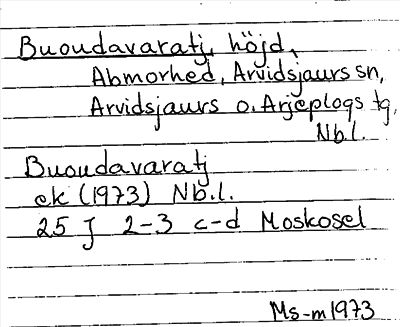 Buoudavaratj, höjd,
Abmorhed, Arvidsjaurs sn,
Arvidsjaurs o. Arjeplogs tg,
Nb.l.
Buoudavaratj
ek (1973) Nb.l.
25 J 2-3 c-d Moskosel
Ms-m 1973